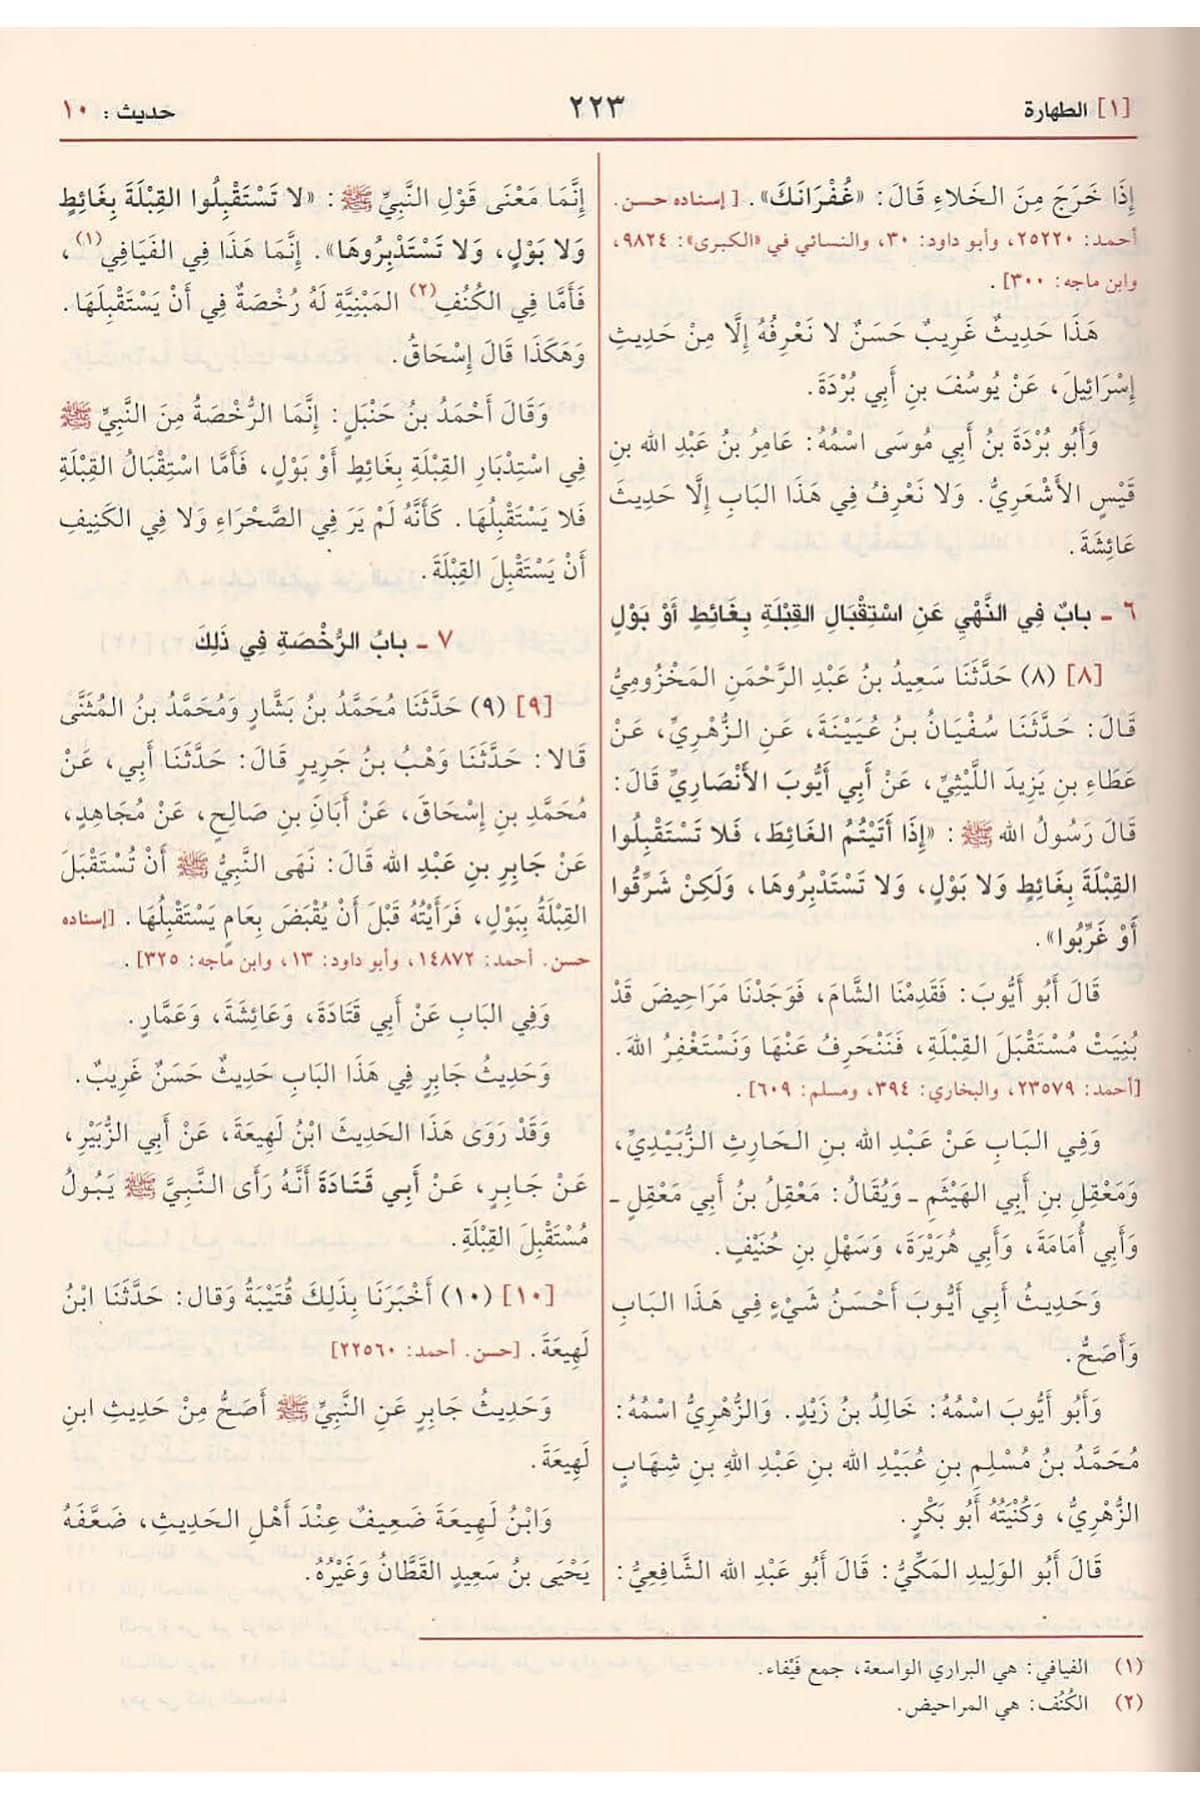 [١] الطهارة
٢٢٣
حديث : ١٠
إِذَا خَرَجَ مِنَ الخَلاءِ قَالَ: «غُفْرَانَكَ». [إسناده حسن.
أحمد: ٢٥٢٢٠، وأبو داود: ٣٠، والنسائي في «الكبرى»: ٩٨٢٤،
وابن ماجه: ٣٠٠].
هَذَا حَدِيثٌ غَرِيبٌ حَسَنٌ لا نَعْرِفُهُ إِلَّا مِنْ حَدِيثِ
إِسْرَائِيلَ، عَنْ يُوسُفَ بنِ أَبِي بُرْدَةَ.
وَأَبُو بُرْدَةَ بنُ أَبِي مُوسَى اسْمُهُ: عَامِرُ بنُ عَبْدِ الله بنِ
قَيْسٍ الأَشْعَرِيُّ. وَلا نَعْرِفُ فِي هَذَا البَابِ إِلَّا حَدِيثَ
عَائِشَةَ.
٦ - بابٌ فِي النَّهْيِ عَنِ اسْتِقْبَالِ القِبْلَةِ بِغَائِطٍ أَوْ بَوْلٍ
[٨] (٨) حَدَّثَنَا سَعِيدُ بنُ عَبْدِ الرَّحْمَنِ المَخْزُومِيُّ
قَالَ: حَدَّثَنَا سُفْيَانُ بنُ عُيَيْنَةَ، عَنِ الزُّهْرِيِّ، عَنْ
عَطَاءِ بنِ يَزِيدَ اللَّيْثِيِّ، عَنْ أَبِي أَيُّوبَ الأَنْصَارِيِّ قَالَ:
قَالَ رَسُولُ الله ﷺ: «إِذَا أَتَيْتُمُ الغَائِطَ، فَلا تَسْتَقْبِلُوا
القِبْلَةَ بِغَائِطٍ وَلا بَوْلٍ، وَلا تَسْتَدْبِرُوهَا، وَلَكِنْ شَرِّقُوا
أَوْ غَرِّبُوا».
قَالَ أَبُو أَيُّوبَ: فَقَدِمْنَا الشَّامَ، فَوَجَدْنَا مَرَاحِيضَ قَدْ
بُنِيَتْ مُسْتَقْبَلَ القِبْلَةِ، فَنَنْحَرِفُ عَنْهَا وَنَسْتَغْفِرُ اللهَ.
[أحمد: ٢٣٥٧٩، والبخاري: ٣٩٤، ومسلم: ٦٠٩].
وَفِي البَابِ عَنْ عَبْدِ الله بنِ الحَارِثِ الزُّبَيْدِيِّ،
وَمَعْقِلِ بنِ أَبِي الهَيْثَمِ - وَيُقَالُ: مَعْقِلُ بنُ أَبِي مَعْقِلٍ -
وَأَبِي أُمَامَةَ، وَأَبِي هُرَيْرَةَ، وَسَهْلِ بنِ حُنَيْفٍ.
وَحَدِيثُ أَبِي أَيُّوبَ أَحْسَنُ شَيْءٍ فِي هَذَا البَابِ
وَأَصَحُّ.
وَأَبُو أَيُّوبَ اسْمُهُ: خَالِدُ بنُ زَيْدٍ. وَالزُّهْرِيُّ اسْمُهُ:
مُحَمَّدُ بنُ مُسْلِمِ بنِ عُبَيْدِ الله بنِ عَبْدِ اللهِ بنِ شِهَابٍ
الزُّهْرِيُّ، وَكُنْيَتُهُ أَبُو بَكْرٍ.
قَالَ أَبُو الوَلِيدِ المَكِّيُّ: قَالَ أَبُو عَبْدِ الله الشَّافِعِيُّ:
إِنَّمَا مَعْنَى قَوْلِ النَّبِيِّ ﷺ: «لا تَسْتَقْبِلُوا القِبْلَةَ بِغَائِطٍ
وَلا بَوْلٍ، وَلا تَسْتَدْبِرُوهَا». إِنَّمَا هَذَا فِي الفَيَافِي(١)،
فَأَمَّا فِي الكُنُفِ(٢) المَبْنِيَّةِ لَهُ رُخْصَةٌ فِي أَنْ يَسْتَقْبِلَهَا.
وَهَكَذَا قَالَ إِسْحَاقُ.
وَقَالَ أَحْمَدُ بنُ حَنْبَلٍ: إِنَّمَا الرُّخْصَةُ مِنَ النَّبِيِّ ﷺ
فِي اسْتِدْبَارِ القِبْلَةِ بِغَائِطٍ أَوْ بَوْلٍ، فَأَمَّا اسْتِقْبَالُ القِبْلَةِ
فَلا يَسْتَقْبِلُهَا. كَأَنَّهُ لَمْ يَرَ فِي الصَّحْرَاءِ وَلا فِي الكَنِيفِ
أَنْ يَسْتَقْبِلَ القِبْلَةَ.
٧ - بابُ الرُّخْصَةِ فِي ذَلِكَ
[٩] (٩) حَدَّثَنَا مُحَمَّدُ بنُ بَشَّارٍ وَمُحَمَّدُ بنُ المُثَنَّى
قَالا: حَدَّثَنَا وَهْبُ بنُ جَرِيرٍ قَالَ: حَدَّثَنَا أَبِي، عَنْ
مُحَمَّدِ بنِ إِسْحَاقَ، عَنْ أَبَانَ بنِ صَالِحٍ، عَنْ مُجَاهِدٍ،
عَنْ جَابِرِ بنِ عَبْدِ الله قَالَ: نَهَى النَّبِيُّ ﷺ أَنْ نُسْتَقْبَلَ
القِبْلَةُ بِبَوْلٍ، فَرَأَيْتُهُ قَبْلَ أَنْ يُقْبَضَ بِعَامٍ يَسْتَقْبِلُهَا. [إسناده
حسن. أحمد: ١٤٨٧٢، وأبو داود: ١٣، وابن ماجه: ٣٢٥].
وَفِي البَابِ عَنْ أَبِي قَتَادَةَ، وَعَائِشَةَ، وَعَمَّارٍ.
وَحَدِيثُ جَابِرٍ فِي هَذَا البَابِ حَدِيثٌ حَسَنٌ غَرِيبٌ.
وَقَدْ رَوَى هَذَا الحَدِيثَ ابْنُ لَهِيعَةَ، عَنْ أَبِي الزُّبَيْرِ،
عَنْ جَابِرٍ، عَنْ أَبِي قَتَادَةَ أَنَّهُ رَأَى النَّبِيَّ ﷺ يَبُولُ
مُسْتَقْبِلَ القِبْلَةِ.
[١٠] (١٠) أَخْبَرَنَا بِذَلِكَ قُتَيْبَةُ وَقال: حَدَّثَنَا ابْنُ
لَهِيعَةَ. [حسن. أحمد: ٢٢٥٦٠]
وَحَدِيثُ جَابِرٍ عَنِ النَّبِيِّ ﷺ أَصَحُّ مِنْ حَدِيثِ ابنِ
لَهِيعَةَ.
وَابْنُ لَهِيعَةَ ضَعِيفٌ عِنْدَ أَهْلِ الحَدِيثِ، ضَعَّفَهُ
يَحْيَى بنُ سَعِيدٍ القَطَّانُ وَغَيْرُهُ.
(١) الفيافي: هي البراري الواسعة، جمع فَيْفاء.
(٢) الكُنُف: هي المراحيض.